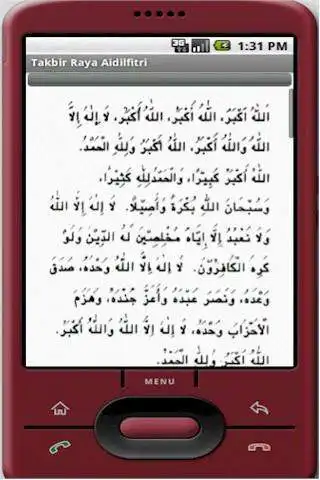 3G
1:31 PM
Takbir Raya Aidilfitri
اَللهُ اَكْبَرُ، اَللهُ أَكْبَرُ، اَللهُ أَكْبَرُ، لَا إِلٰهَ إِلَّا
اللهُ وَاللهُ أَكْبَرُ، اَللهُ أَكْبَرُ وَلِلّٰهِ الْحَمْدُ.
اَللهُ أَكْبَرُ كَبِيْرًا، وَالْحَمْدُلِلّٰهِ كَثِيْرًا،
وَسُبْحَانَ اللهِ بُكْرَةً وَأَصِيْلًا. لَا إِلٰهَ إِلَّا اللهُ
وَلَا نَعْبُدُ إِلَّا إِيَّاهُ مُخْلِصِيْنَ لَهُ الدِّيْنَ وَلَوْ
كَرِهَ الْكَافِرُوْنَ. لَا إِلٰهَ إِلَّا اللهُ وَحْدَهُ، صَدَقَ
وَعْدَهُ، وَنَصَرَ عَبْدَهُ وَأَعَزَّ جُنْدَهُ، وَهَزَمَ
الْأَحْزَابَ وَحْدَهُ، لَا إِلٰهَ إِلَّا اللهُ وَاللهُ أَكْبَرُ.
اَللهُ أَكْبَرُ وَلِلّٰهِ الْحَمْدُ.
MENU